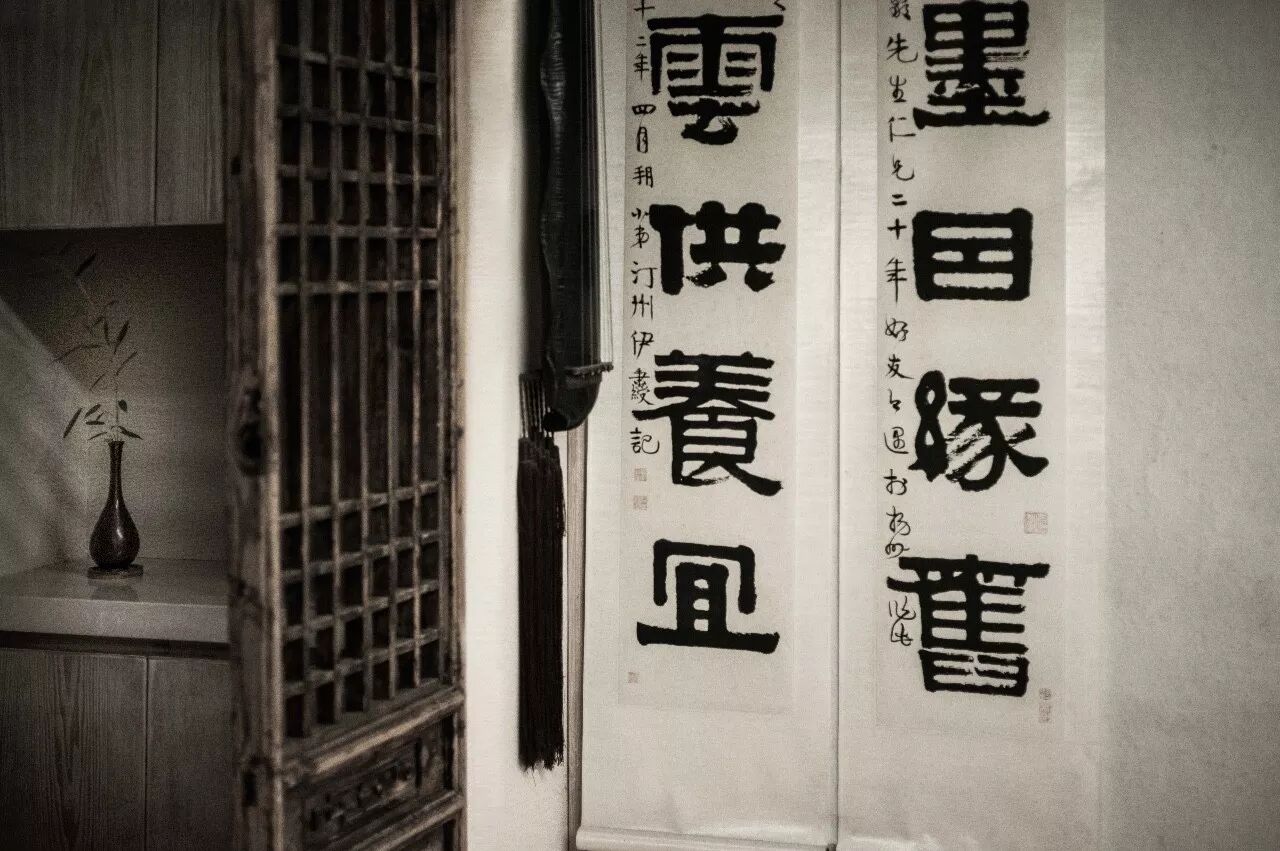 墨因緣舊
先生仁兄二十年好友遇於揚州
雲供養宜
十二年四月朔小弟汀州伊秉綬記